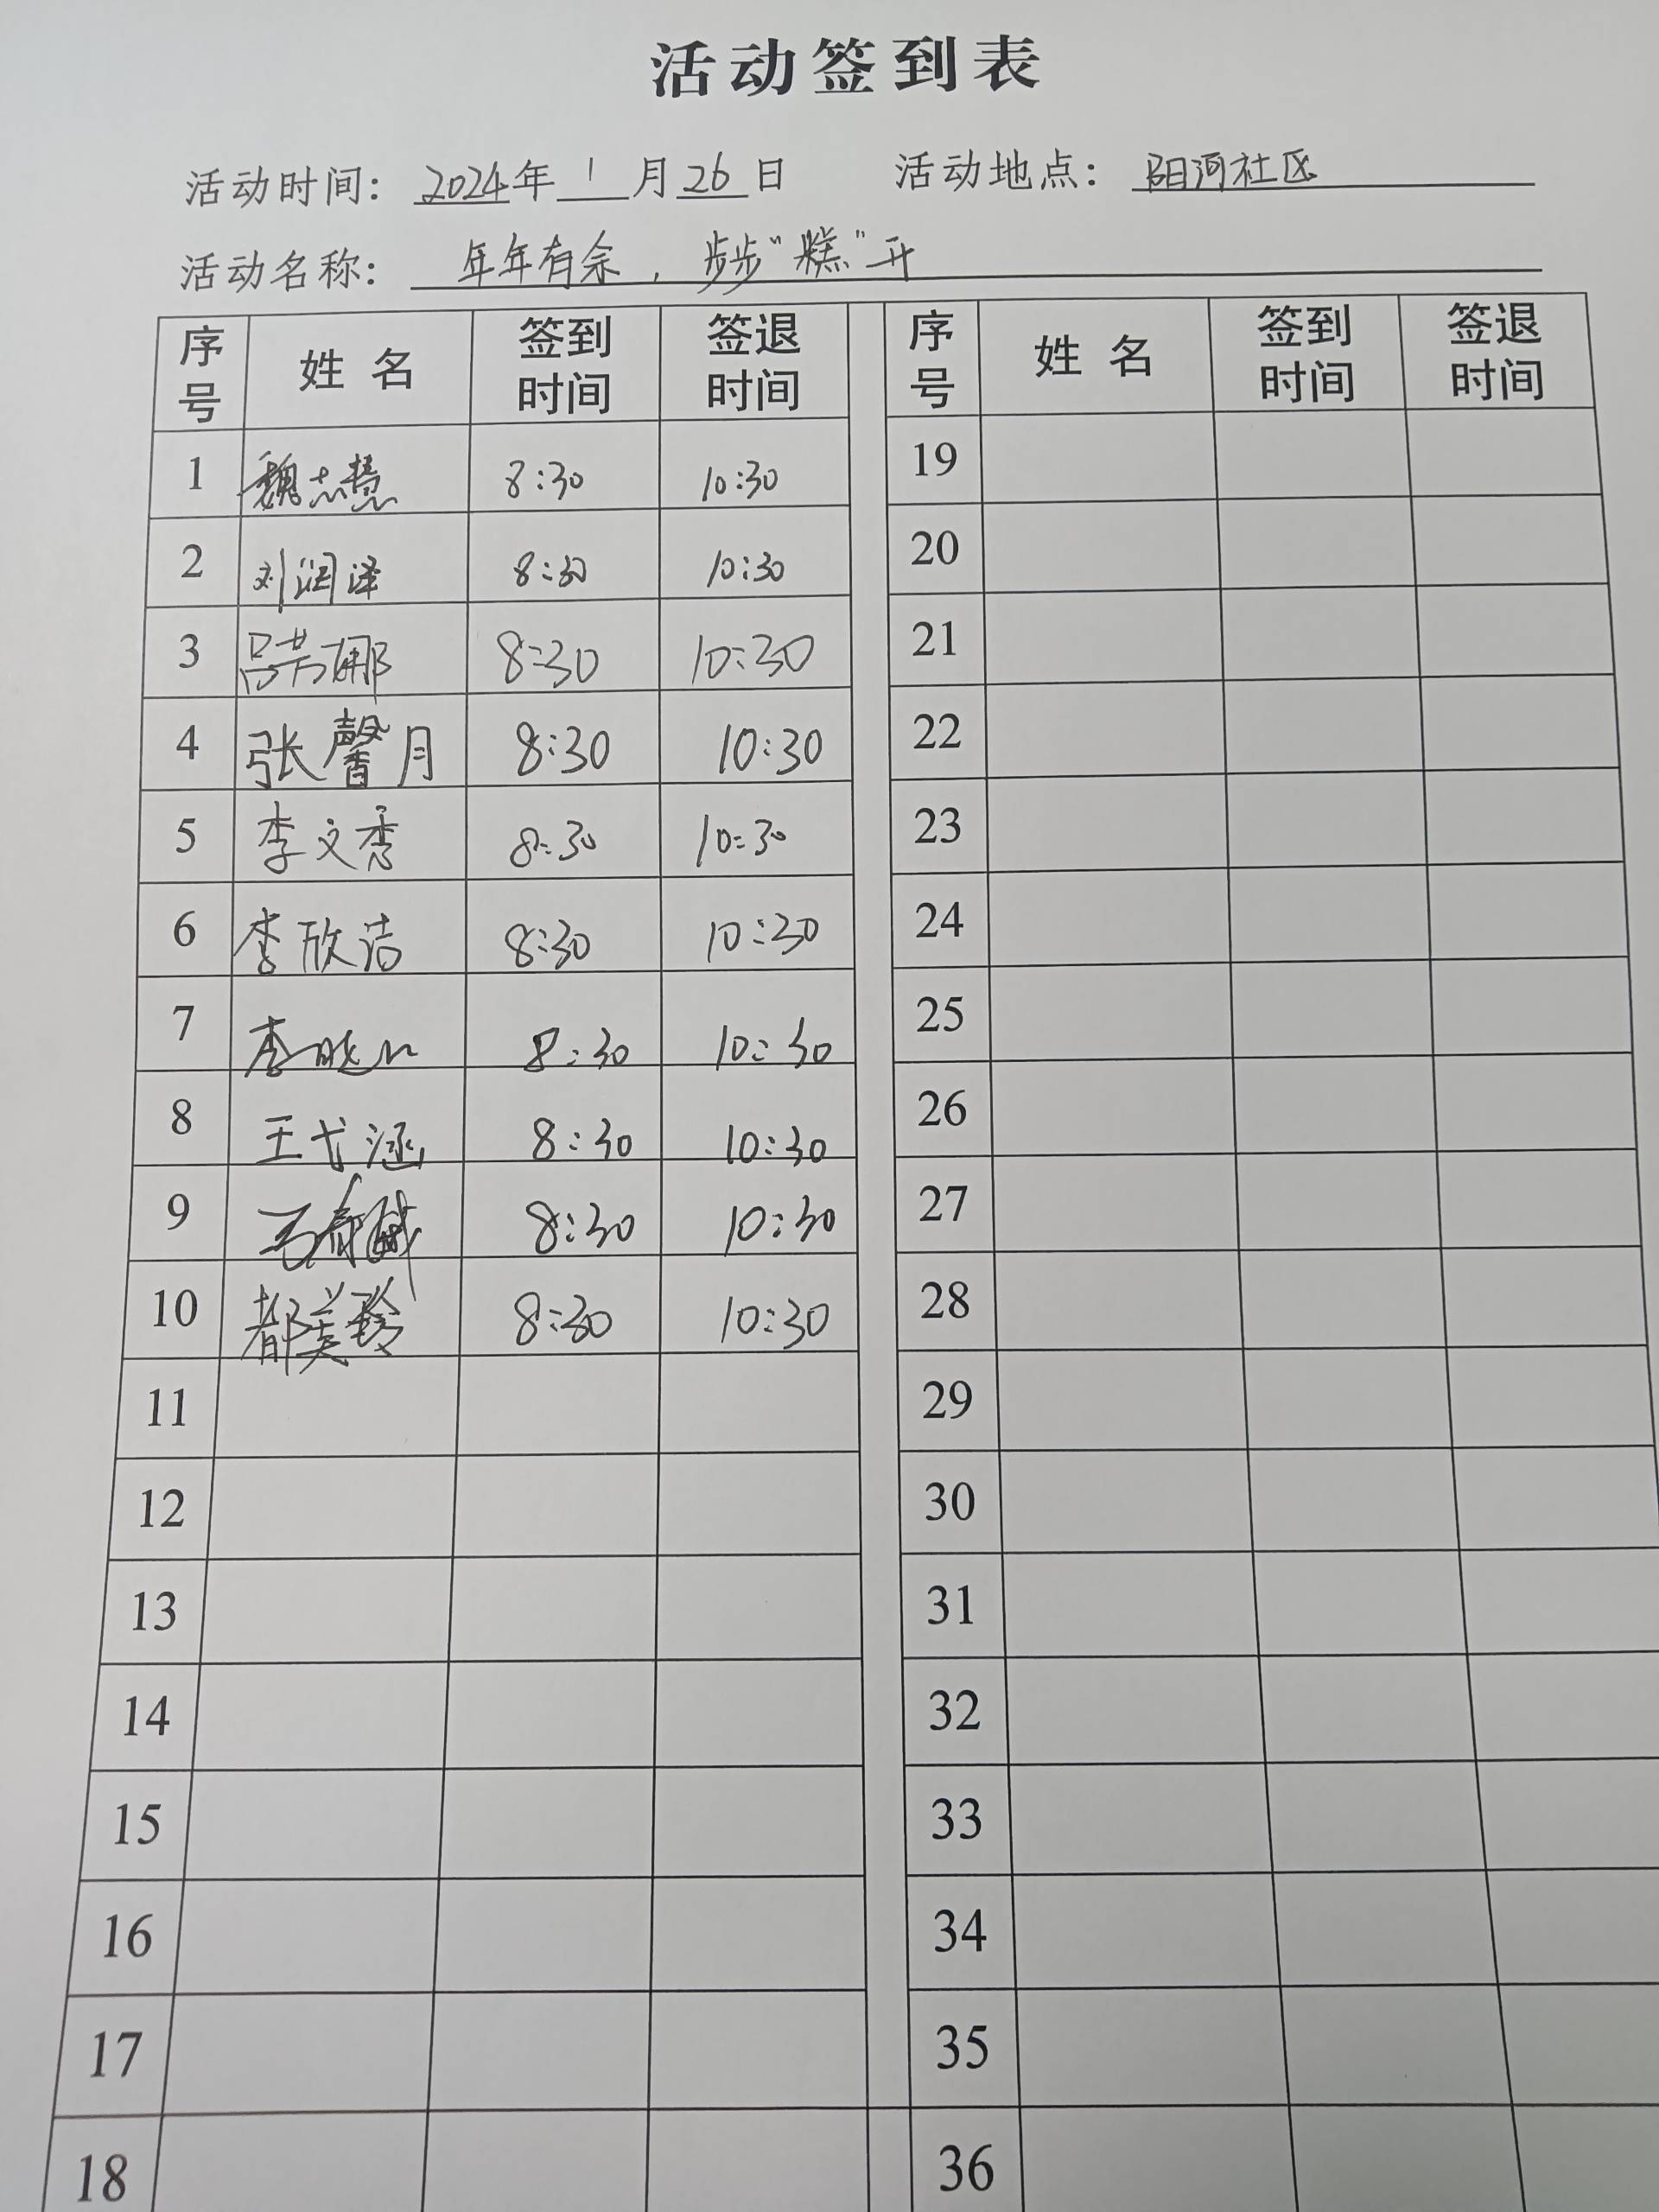 活动签到表
活动时间：2024年 1 月 26 日 活动地点：阳河社区
活动名称：年年有余，步步“糕”升
序号 姓名 签到时间 签退时间 序号 姓名 签到时间 签退时间
1 魏志慧 8:30 10:30 19
2 刘润泽 8:30 10:30 20
3 吕芳娜 8:30 10:30 21
4 张馨月 8:30 10:30 22
5 李文秀 8:30 10:30 23
6 李欣洁 8:30 10:30 24
7 李晓 8:30 10:30 25
8 王弋涵 8:30 10:30 26
9 8:30 10:30 27
10 都美玲 8:30 10:30 28
11 29
12 30
13 31
14 32
15 33
16 34
17 35
18 36